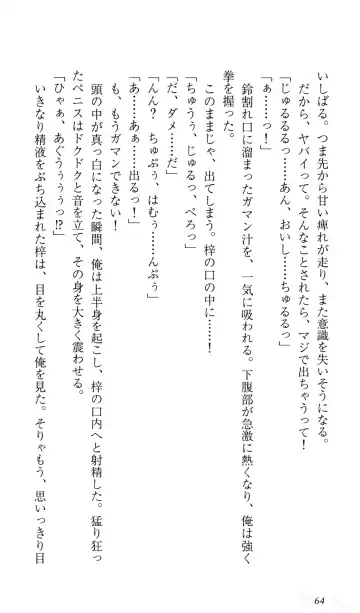 いしばる。つま先から甘い痺れが走り、また意識を失いそうになる。
だから、ヤバイって。そんなことされたら、マジで出ちゃうって！
「じゅるるるるっ……あん、おいし……ちゅるるっ」
「ぁ……っ！」
鈴割れ口に溜まったガマン汁を、一気に吸われる。下腹部が急激に熱くなり、俺は強く
拳を握った。
このままじゃ、出てしまう。梓の口の中に……！
「ちゅうぅ、じゅるっ、ぺろっ」
「だ、ダメ……だ」
「んん？　ちゅぷぅ、はむぅ……んぷぅ」
「あ……あぁ……出るっ！」
も、もうガマンできない！
頭の中が真っ白になった瞬間、俺は上半身を起こし、梓の口内へと射精した。猛り狂っ
たペニスはドクドクと音を立て、その身を大きく震わせる。
「ひゃぁ、あぐうぅぅぅっ!?」
いきなり精液をぶち込まれた梓は、目を丸くして俺を見た。そりゃもう、思いっきり目
64